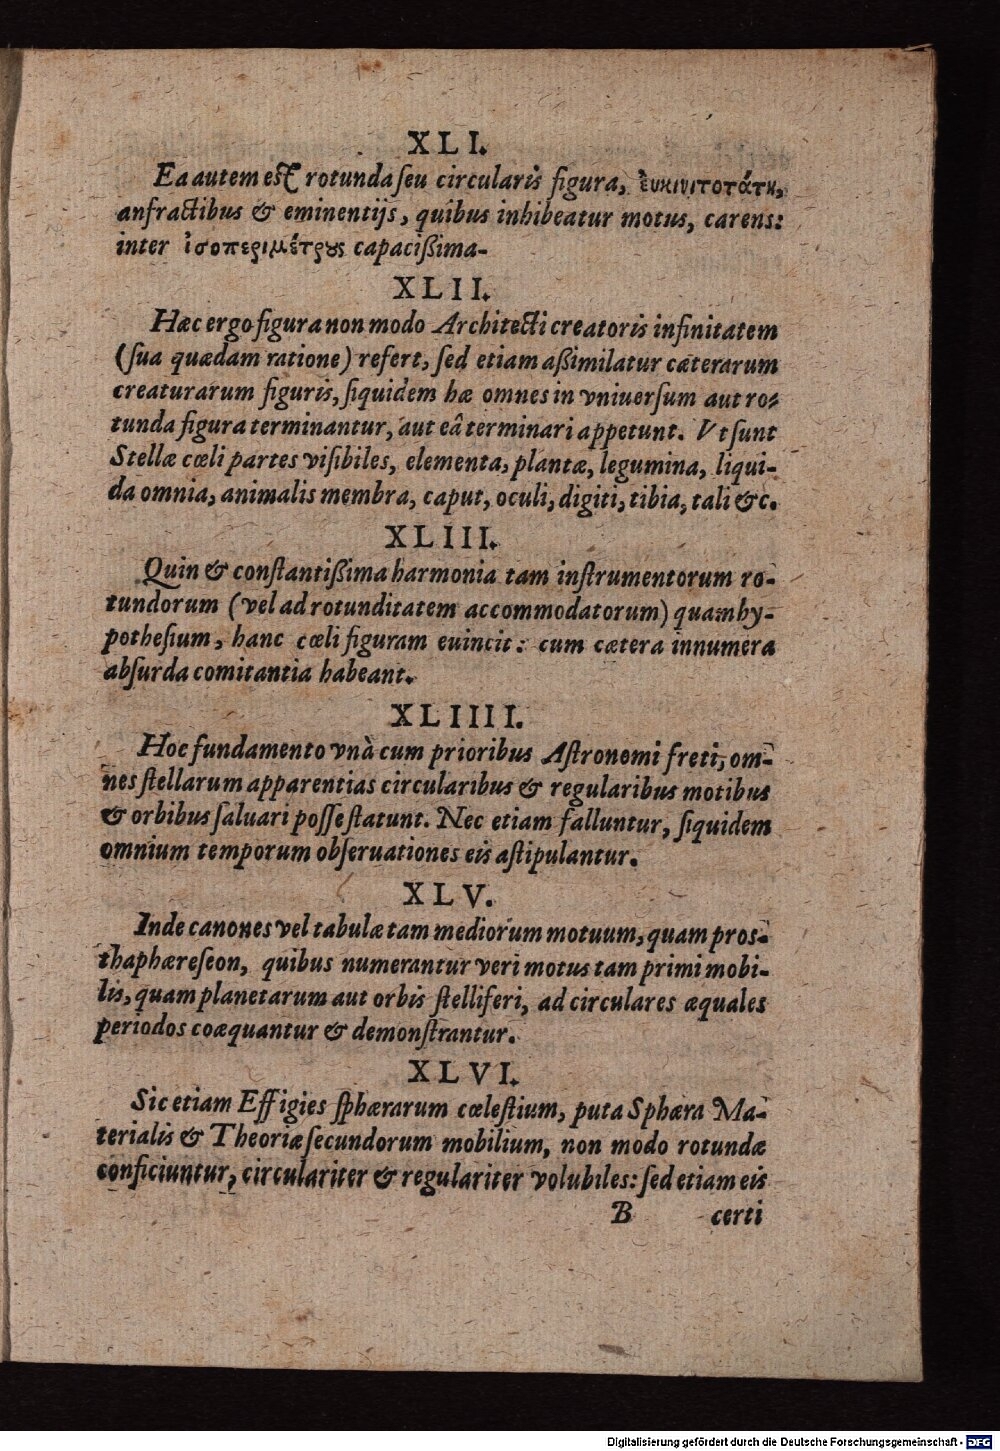 XLI.
Ea autem est rotunda ſeu circularis figura, ἐυκινιτοτάτη,
anfractibus & eminentijs, quibus inhibeatur motus, carens:
inter ἰσοπεριμέτρους capacißima.
XLII.
Hæc ergo figura non modo Architecti creatoris infinitatem
(ſua quædam ratione) refert, ſed etiam aßimilatur cæterarum
creaturarum figuris, ſiquidem hæ omnes in vniuerſum aut ro-
tunda figura terminantur, aut eâ terminari appetunt. Vt ſunt
Stellæ cœli partes viſibiles, elementa, plantæ, legumina, liqui-
da omnia, animalis membra, caput, oculi, digiti, tibia, tali &c.
XLIII.
Quin & conſtantißima harmonia tam inſtrumentorum ro-
tundorum (vel ad rotunditatem accommodatorum) quam hy-
potheſium, hanc cœli figuram euincit: cum cætera innumera
abſurda comitantia habeant.
XLIIII.
Hoc fundamento vnà cum prioribus Aſtronomi freti, om-
nes ſtellarum apparentias circularibus & regularibus motibus
& orbibus ſaluari poſſe ſtatunt. Nec etiam falluntur, ſiquidem
omnium temporum obſeruationes eis aſtipulantur.
XLV.
Inde canones vel tabulæ tam mediorum motuum, quam pros-
thaphæreſeon, quibus numerantur veri motus tam primi mobi-
lis, quam planetarum aut orbis ſtelliferi, ad circulares æquales
periodos coæquantur & demonſtrantur.
XLVI.
Sic etiam Effigies ſphærarum cœleſtium, puta Sphæra Ma-
terialis & Theoriæ ſecundorum mobilium, non modo rotundæ
conficiuntur, circulariter & regulariter volubiles: ſed etiam eis
B certi
Digitalisierung gefördert durch die Deutsche Forschungsgemeinschaft - DFG